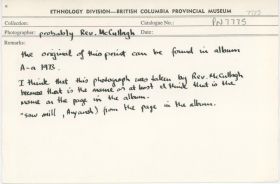 ETHNOLOGY DIVISION—BRITISH COLUMBIA PROVINCIAL MUSEUM
Collection: Catalogue No.: PN7775
Photographer: probably Rev. McCullagh Date:
Remarks:
the original of this print can be found in album
A-a 1973.
I think that this photograph was taken by Rev. McCullagh
because that is the name or at least I think that is the
name on the page in the album.
"saw mill, Aiyansh) from the page in the album.